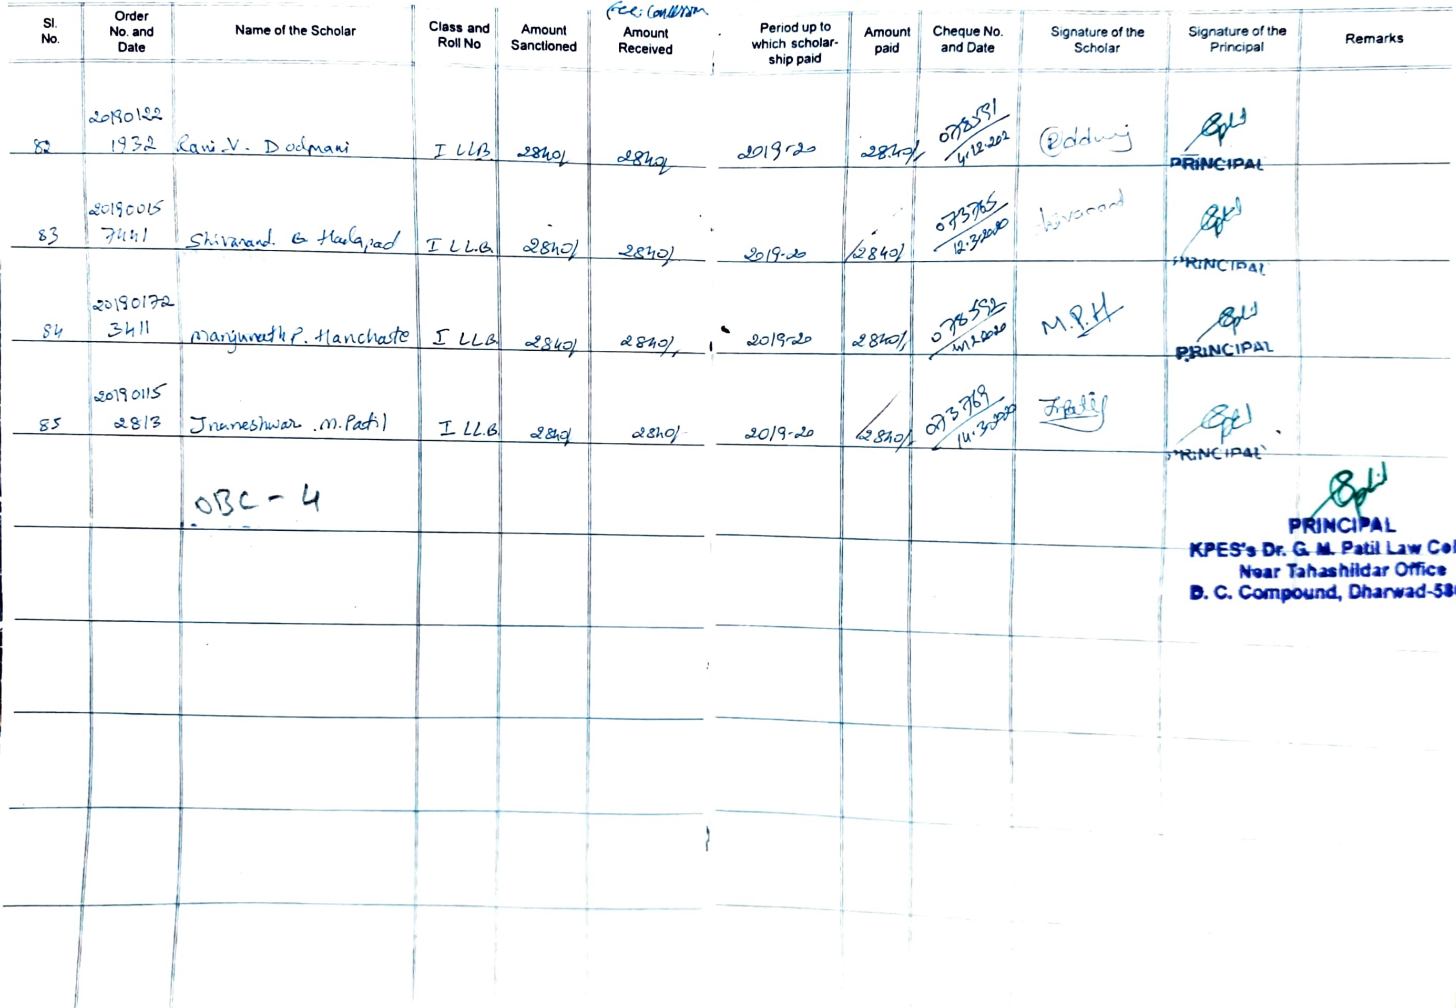 Sl. No. Order No. and Date Name of the Scholar Class and Roll No Amount Sanctioned Fee Concession Amount Received Period up to which scholar-ship paid Amount paid Cheque No. and Date Signature of the Scholar Signature of the Principal Remarks
82 20190122 1932 Rani. V. Dodmani I LLB. 2840/ 2840/ 2019-20 2840/ 078591 4.12.202 PRINCIPAL
83 20190015 7441 Shivanand. B Hadapad I LL.B. 2840/ 2840/ 2019-20 2840/ 073765 12.3.2020 PRINCIPAL
84 20190172 3411 Manjunath P. Hanchate I LLB 2840/ 2840/ 2019-20 2840/ 078592 2020 M.P.H PRINCIPAL
85 20190115 2813 Jnaneshwar .M. Patil I LL.B. 2840/ 2840/ 2019-20 2840/ 073769 14.3.2020 PRINCIPAL
OBC - 4
PRINCIPAL
KPES's Dr. G. M. Patil Law Col
Near Tahashildar Office
D. C. Compound, Dharwad-58